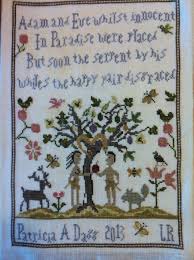 Adam and Eve whilst innocent
In Paradise were placed
But soon the serpent by his
whiles the happy pair disgraced
Patricia A Dagg 2013 LR